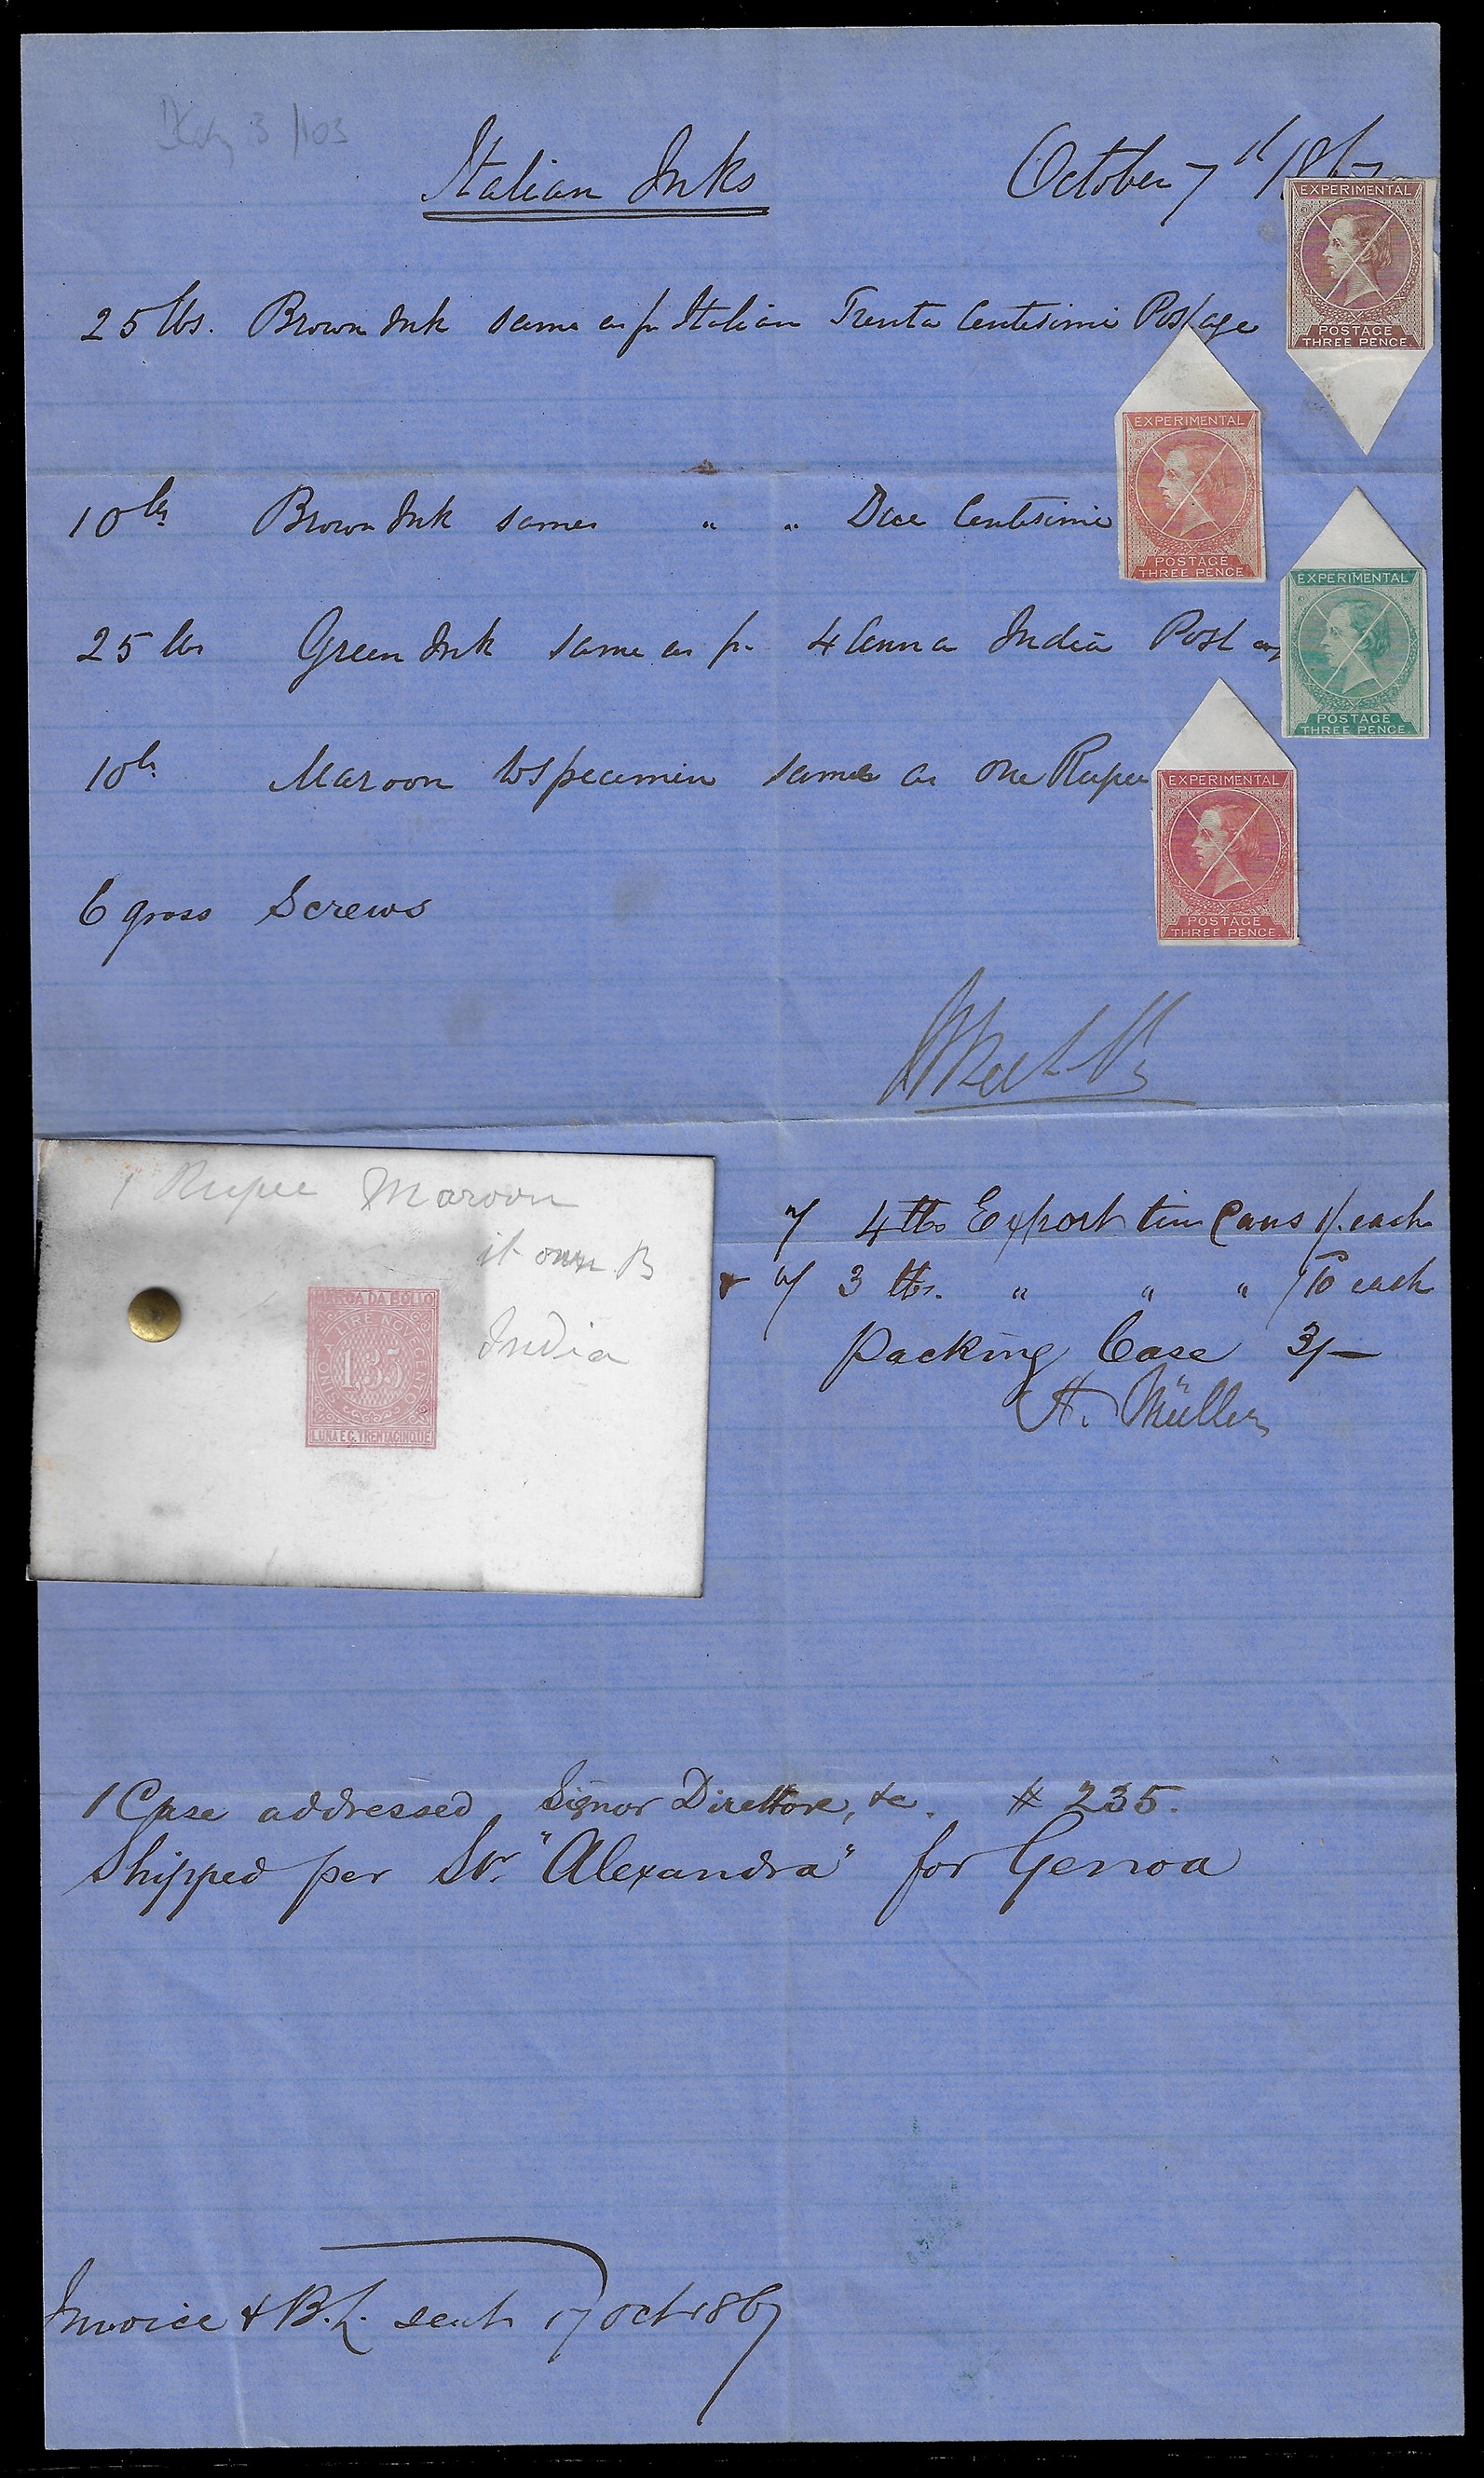 Italy 3/103
Italian Inks October 7th 1867
EXPERIMENTAL
POSTAGE
THREE PENCE.
25 lbs. Brown Ink same as pr Italian Trenta Centesimi Postage
EXPERIMENTAL
POSTAGE
THREE PENCE
10 lbs Brown Ink same " " Due Centesimi
EXPERIMENTAL
POSTAGE
THREE PENCE.
25 lbs Green Ink same as pr. 4 Anna India Postage
EXPERIMENTAL
POSTAGE
THREE PENCE.
10 lbs Maroon to specimen same as One Rupee
6 gross Screws
1 Rupee Maroon
B
India
MARCA DA BOLLO
FINO A LIRE NOVECENTO
1,35
LUNA E C. TRENTACINQUE
7 4 lbs Export tin Cans 1/. each
& 9 3 lbs. " " " /10 each
Packing Case 3/-
H. Müller
1 Case addressed, Signor Direttore, &c. # 235.
Shipped per Str. "Alexandra" for Genoa
Invoice & B.L. sent 17 Oct 1867